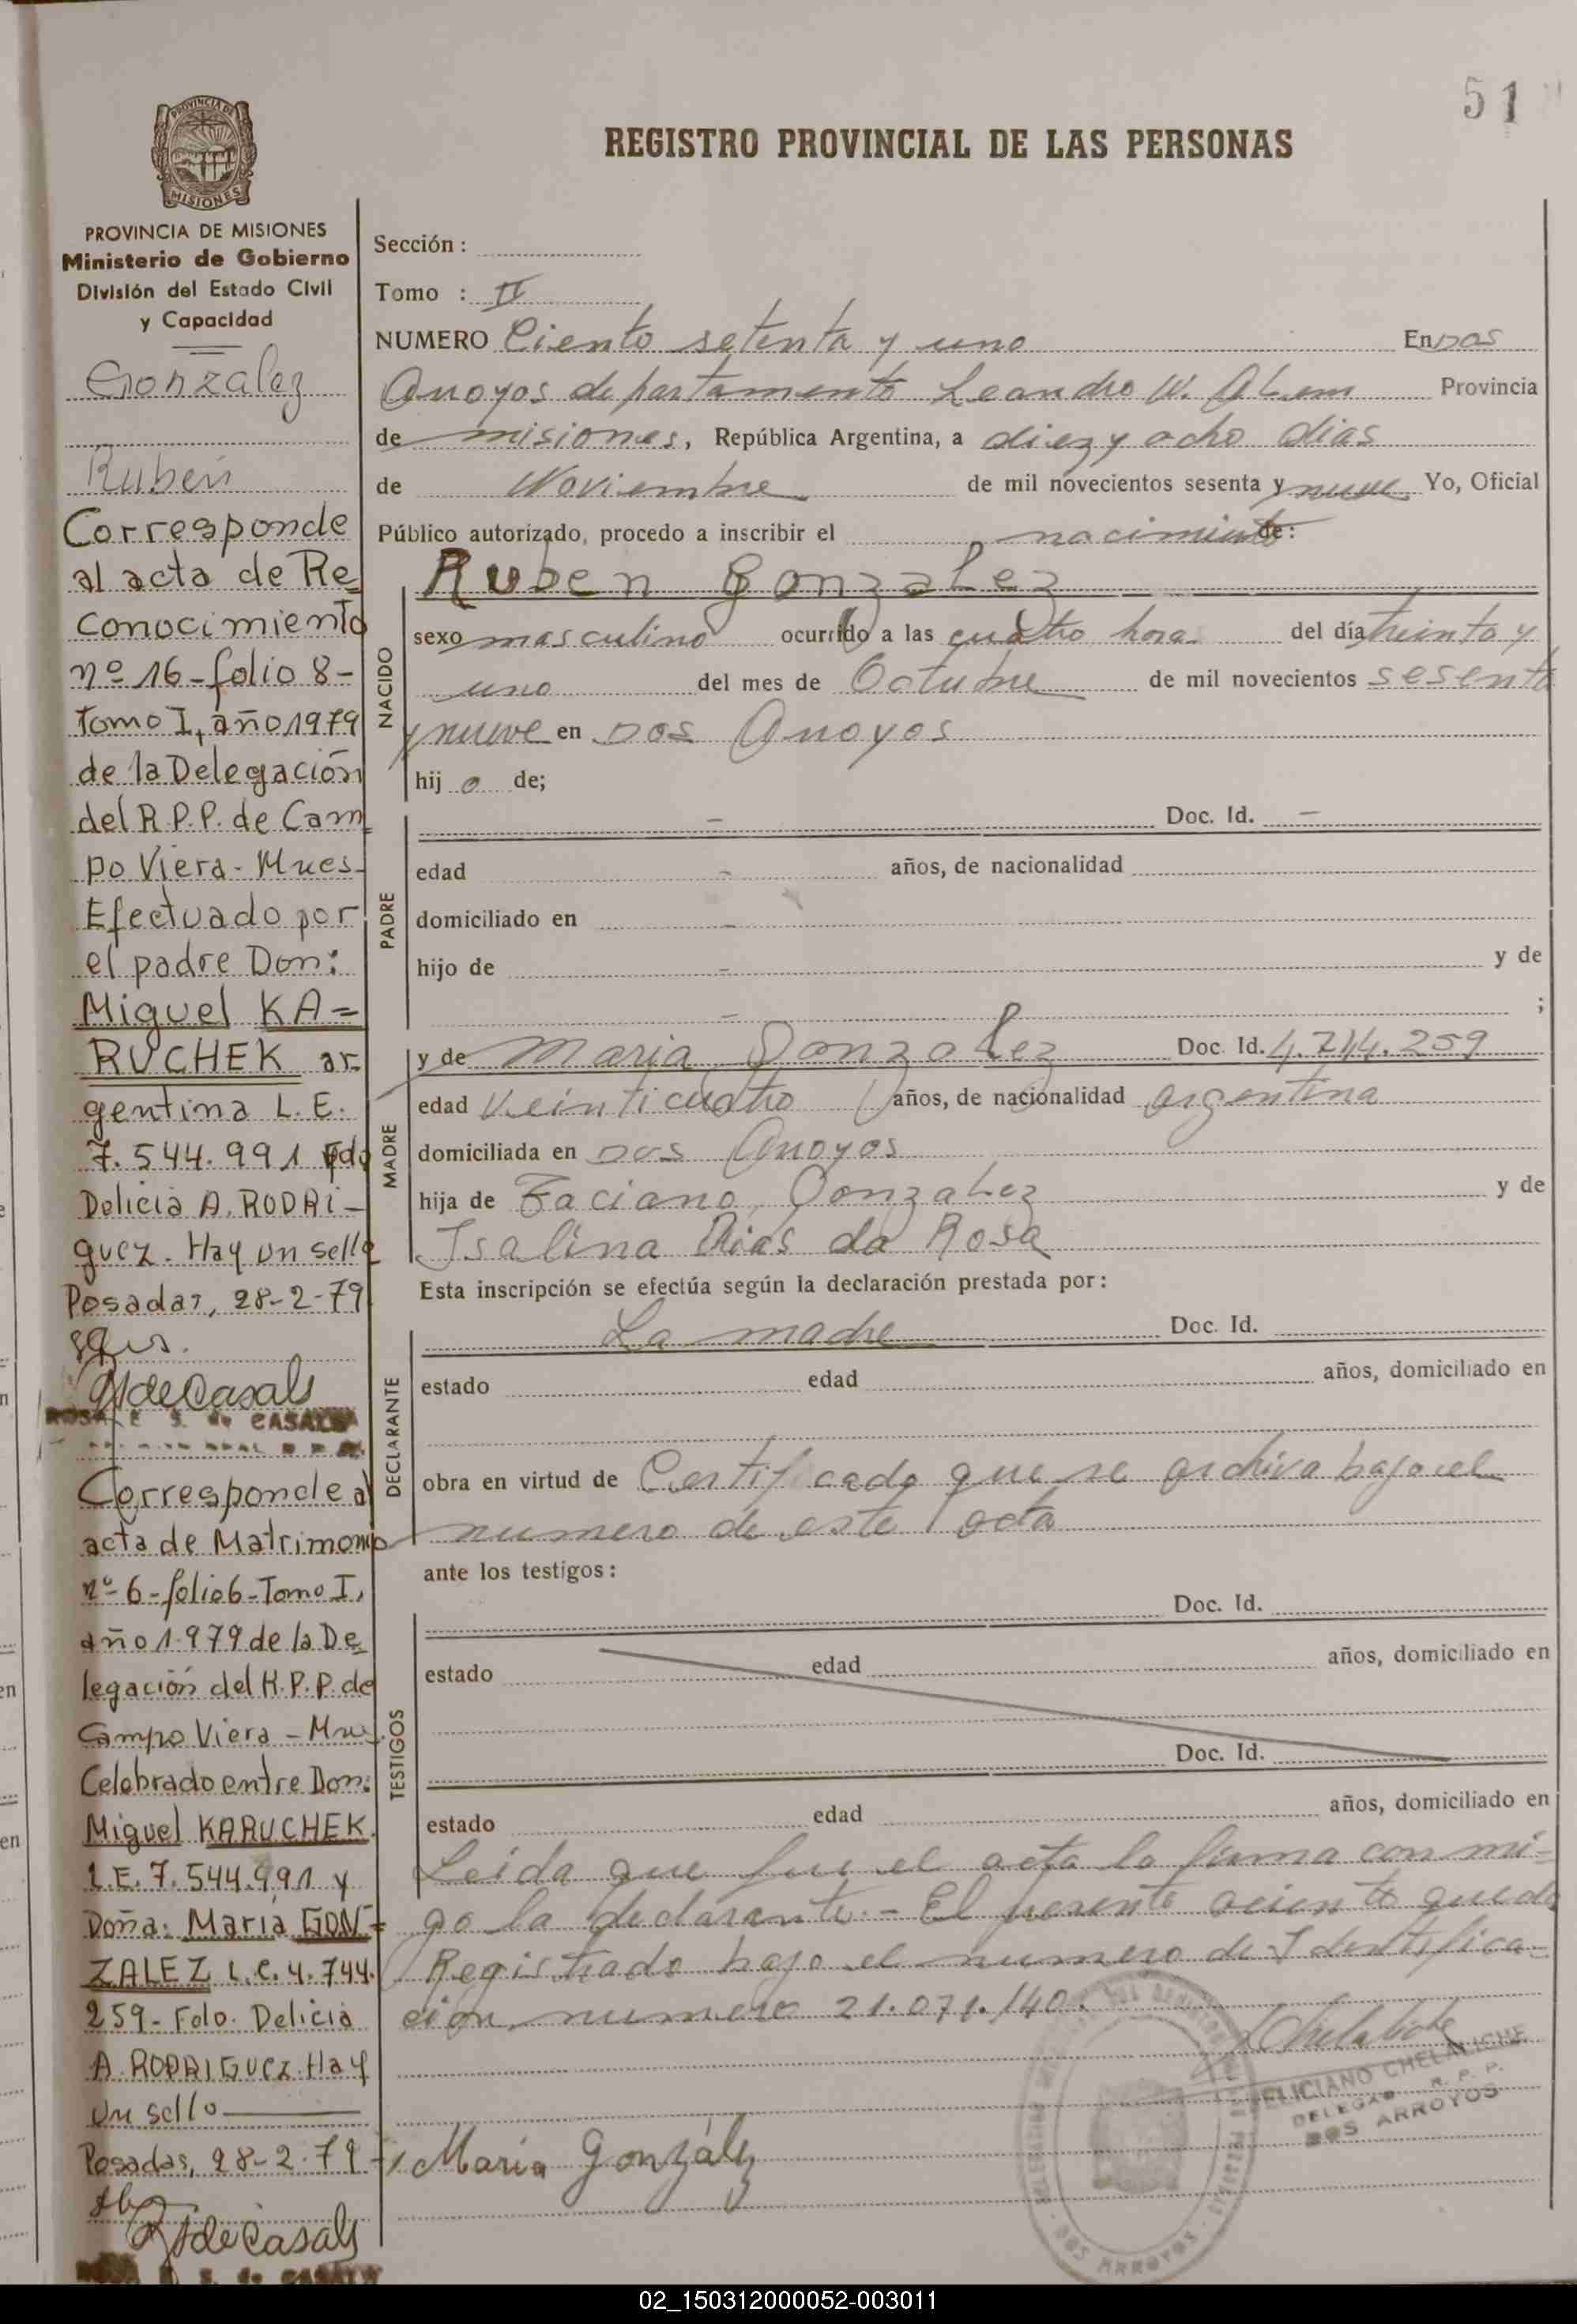 51
REGISTRO PROVINCIAL DE LAS PERSONAS
PROVINCIA DE MISIONES
PROVINCIA DE MISIONES
Ministerio de Gobierno
División del Estado Civil
y Capacidad
Gonzalez
Rubén
Corresponde
al acta de Re
conocimiento
nº 16-folio 8-
Tomo I, año 1979
de la Delegación
del R.P.P. de Cam
po Viera-Mnes-
Efectuado por
el padre Don:
Miguel KA=
RUCHEK ar-
gentina L.E.
7.544.991 Fdo
Delicia A. RODRI-
guez. Hay un sello
Posadas, 28-2-79
G de Casals
ROSA E. S. de CASALS
Corresponde al
acta de Matrimonio
nº-6-folio 6-Tomo I,
año 1979 de la De
legación del R.P.P. de
Campo Viera-Mnes.
Celebrado entre Don:
Miguel KARUCHEK
L.E. 7.544.991 y
Doña: Maria GON=
ZALEZ L.C. 4.744.
259- Fdo. Delicia
A. RODRIGUEZ. Hay
un sello
Posadas, 28-2-79-
de Casals
S. de CASALS
Sección :
Tomo : II
NUMERO Ciento setenta y uno En Dos
Arroyos departamento Leandro N. Alem Provincia
de misiones, República Argentina, a diez y ocho dias
de Noviembre de mil novecientos sesenta y nueve Yo, Oficial
Público autorizado, procedo a inscribir el nacimiento de:
NACIDO
Ruben Gonzalez
sexo masculino ocurrido a las cuatro hora del día treinta y
uno del mes de Octubre de mil novecientos sesenta
y nueve en Dos Arroyos
hij o de;
PADRE
- Doc. Id. -
edad - años, de nacionalidad
domiciliado en -
hijo de - y de
- ;
MADRE
y de Maria Gonzalez Doc. Id. 4.744.259
edad Veinticuatro años, de nacionalidad argentina
domiciliada en Dos Arroyos
hija de Faciano Gonzalez y de
Isalina Dias da Rosa
Esta inscripción se efectúa según la declaración prestada por:
DECLARANTE
La madre Doc. Id.
estado edad años, domiciliado en
obra en virtud de Certificado que se archiva bajo el
numero de este acta
ante los testigos:
TESTIGOS
Doc. Id.
estado edad años, domiciliado en
Doc. Id.
estado edad años, domiciliado en
Leida que fue el acta la firma con mi-
go la declarante.- El presente aciento queda
Registrado bajo el numero de Identifica-
ción numero 21.071.140.
Chelaliche
FELICIANO CHELALICHE
DELEGADO R. P. P.
DOS ARROYOS
María González
DOS ARROYOS
02_150312000052-003011